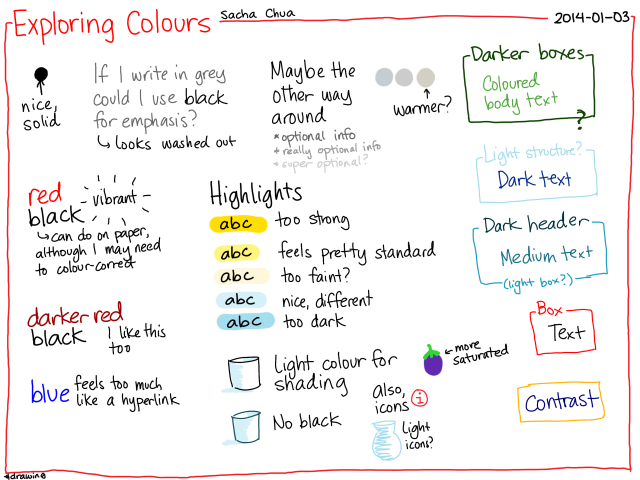 Exploring Colours
Sacha Chua
2014-01-03
nice,
solid
If I write in grey
could I use black
for emphasis?
looks washed out
Maybe the
other way
around
*optional info
*really optional info
*super optional?
warmer?
Darker boxes
Coloured
body text
?
Light structure?
Dark text
Dark header
Medium text
(light box?)
Box
Text
Contrast
red
black
vibrant
can do on paper,
although I may need
to colour-correct
darker red
black
I like this
too
blue
feels too much
like a hyperlink
Highlights
abc too strong
abc feels pretty standard
abc too faint?
abc nice, different
abc too dark
Light colour for
shading
more
saturated
No black
also,
icons i
Light
icons?
#drawing